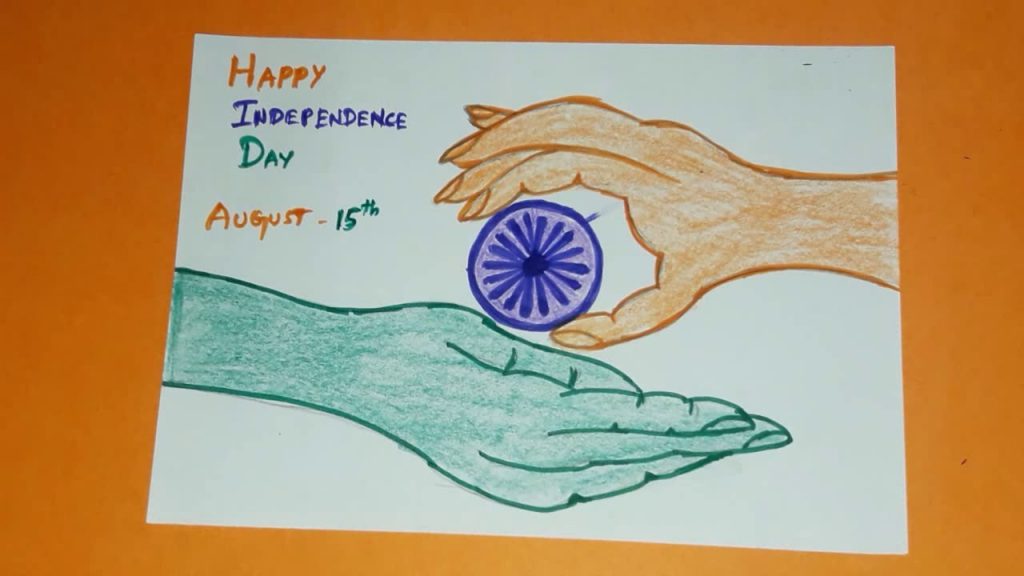 HAPPY
INDEPENDENCE
DAY
AUGUST - 15th